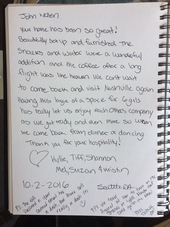 John + Helen
Your home has been so great!
Beautifully set up and furnished. The
snacks and water were a wonderful
addition and the coffee after a long
flight was like heaven. We can't wait
to come back and visit Nashville again.
Having this large of a space for 6 girls
has really let us enjoy each others company
as we got ready and even more so when
we came back from dinner or dancing.
Thank you for your hospitality!
Kylie, Tiff, Shannon
Mel, Suzan & Kristin
10-2-2016
Seattle, WA